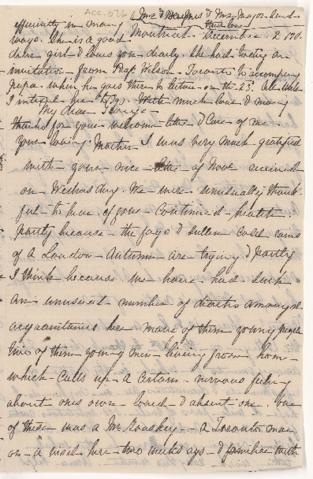 ACC. 026
Montreal December 2
ways. She is a good
dear girl & loves you dearly. She had lately an
invitation from Prof. Wilson, Toronto, to accompany
papa when he goes there to lecture on the 23.
I intend her to go. With much love & many
thanks for your welcome letter & care of me
Your loving Mother
My dear George
I was very much gratified
with your nice letter of Nov. received
on Wednesday. We were unusually thank-
ful to hear of your continued health
partly because the fogs & sullen cold rains
of a London Autumn are trying & partly
I think because we have had such
an unusual number of deaths amongst
acquaintances here many of them young people
five of them young men living from home
which calls up a certain nervous feeling
about ones own loved & absent one. One
of these was a Mr. a Toronto man
on a visit here two weeks ago & familiar with